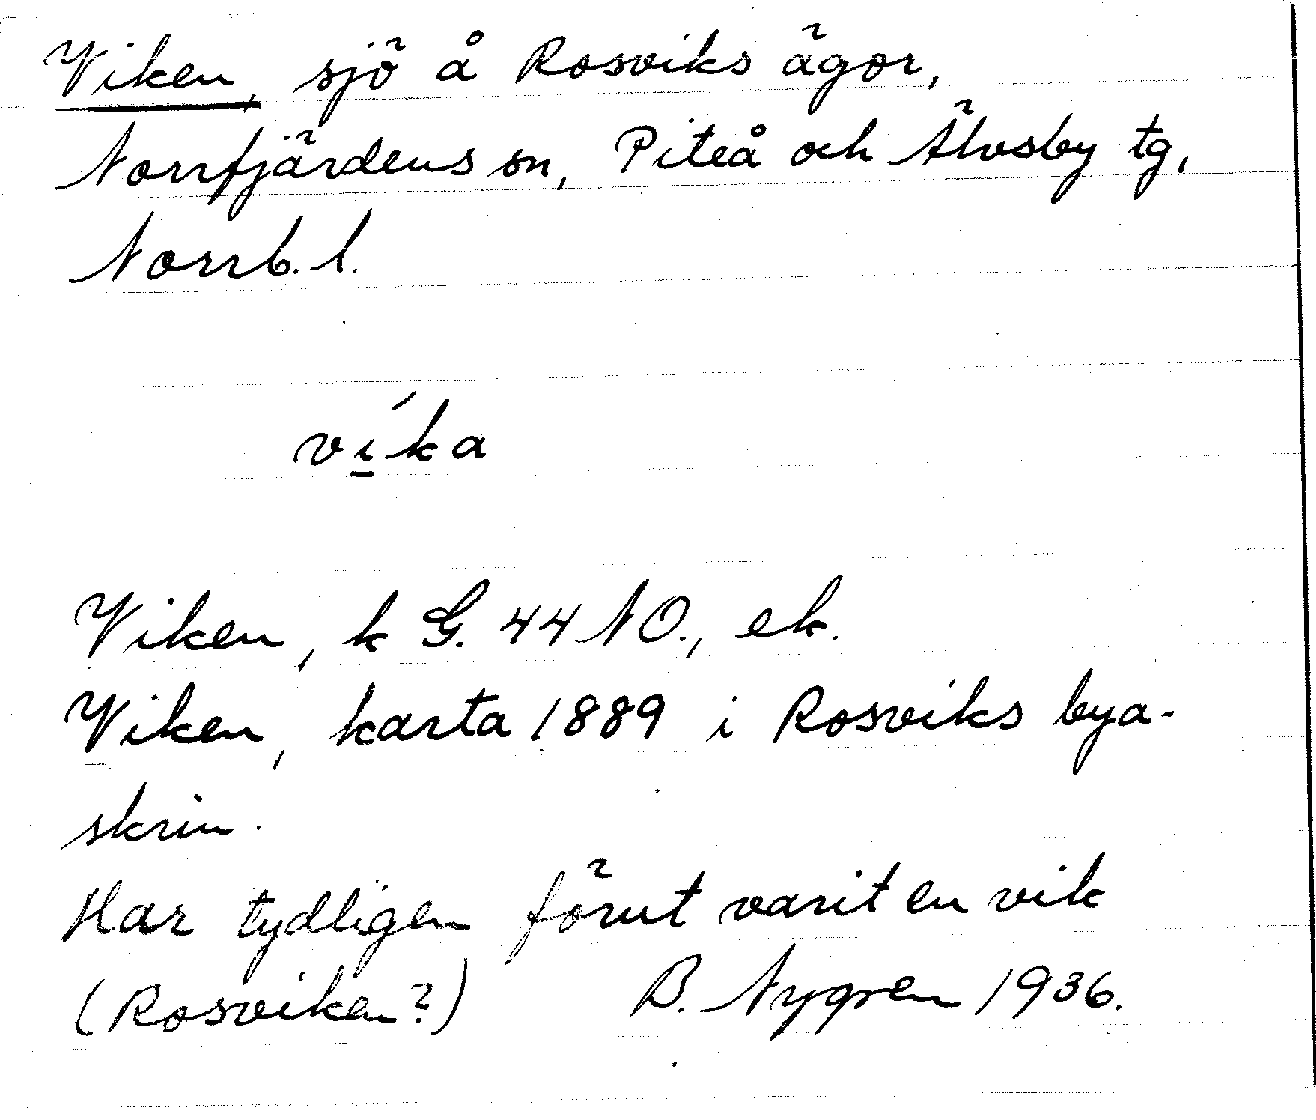 Viken, sjö å Rosviks ägor,
Norrfjärdens sn, Piteå och Älvsby tg,
Norrb. l.
ví̱ka
Viken, k G. 44 NO., ek.
Viken, karta 1889 i Rosviks bya-
skrin.
Har tydligen förut varit en vik
(Rosviken?) B. Nygren 1936.